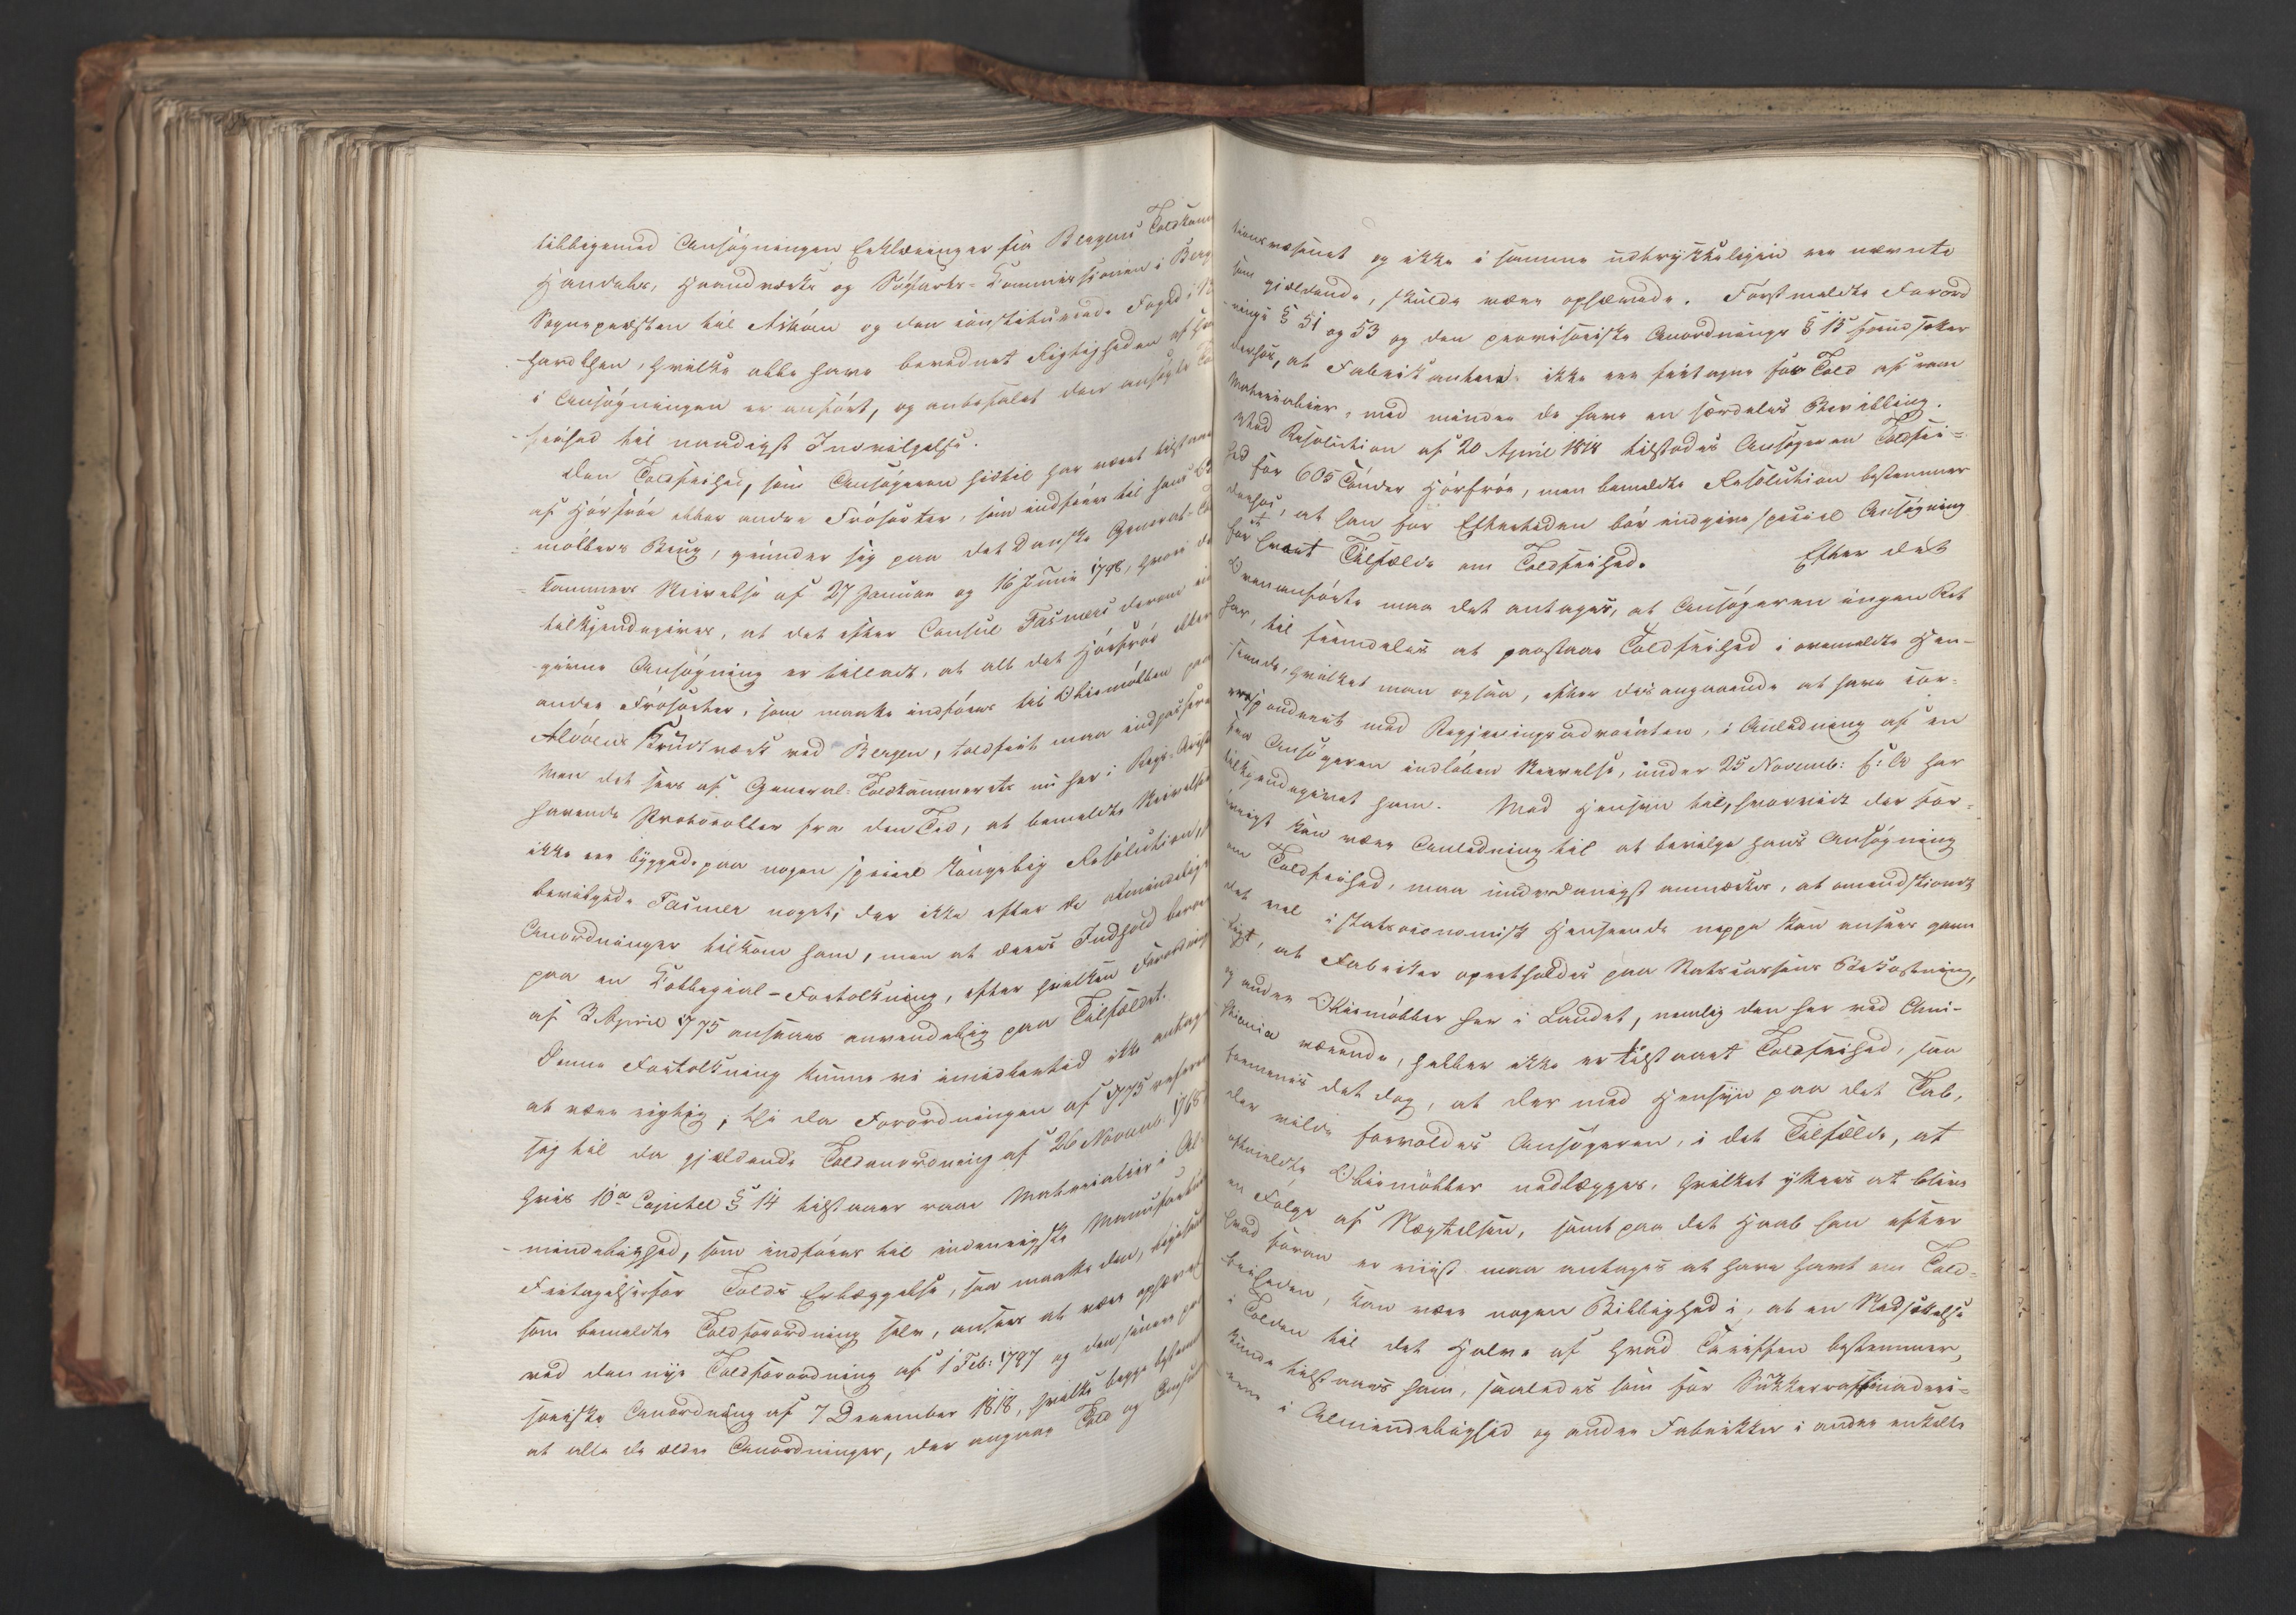 tilligemed Ansøgningen Erklæringer fra Bergens Toldkam
Handels, Haandværks og Søfarts-Kommissionen i Berg
Sognepræsten til Askøen og den constituerede Foged i
hordlehn, hvilke alle have bevidnet Rigtigheden af hva
i Ansøgningen er anført, og anbefalet den ansøgte To
frihed til naadigst Indvilgelse.
Den Toldfrihed, som Ansøgeren hidtil har været tilstaaet
af Hørfrøe eller andre Frøsorter, som indføres til hans
møllers Brug, grunder sig paa det Danske General-To
kammers Skrivelse af 27 Januar og 16 Junii 1798, hvori
tilkjendegives, at det efter Consul Fasmers derom
givne Ansøgning er tilladt, at alt det Hørfrøe eller
andre Frøsorter, som maatte indføres til Oliemøllen paa
Alvøens Krudtværk ved Bergen, toldfrit maa indpassere
Men det sees af General-Toldkammerets nu her i
havende Protocoller fra den Tid, at bemeldte Skrivelse
ikke ere byggede paa nogen special kongelig Resolution,
bevilgede Fasmer noget, der ikke efter de almindelige
Anordninger tilkom ham, men at deres Indhold beroe
paa en Collegial-Fortolkning, efter hvilken Forordning
af 3 April 1775 ansaaes anvendelig paa Tilfældet.
Denne Fortolkning kunne vi imidlertid ikke antage
at være rigtig; thi da Forordningen af 1775 refererer
sig til da gjældende Toldanordning af 26 Novemb. 1768
hvis 10de Capitel § 14 tilstaaer raae Materialier i Al-
mindelighed, som indføres til indenrigske Manufactur
Fritagelse for Tolds Erlæggelse, saa maatte den, ligesom
som bemeldte Toldforordning selv, ansees at være ophævet
ved den nye Toldforordning af 1 Feb: 1797 og den senere pro
soriske Anordning af 7 December 1818, hvilke begge bestemme
at alle de ældre Anordninger, der angaae Told og Consum
tionsvæsenet og ikke i samme udtrykkeligen ere nævnte
som gieldende, skulde være ophævede. Førstmeldte Forord
nings § 51 og 53 og den provisoriske Anordnings § 15
derhos, at Fabrikanterne ikke ere fritagne for Told af raae
Materialier, med mindre de have en særdeles Bevilling.
Ved Resolution af 20 April 1818 tilstodes Ansøgeren Toldfri-
hed for 605 Tønder Hørfrøe, men bemeldte Resolution bestemmer
derhos, at han for Eftertiden bør indgive special Ansøgning
for hvert Tilfælde om Toldfrihed. Efter det
Ovenanførte maa det antages, at Ansøgeren ingen Ret
har, til fremdeles at paastaae Toldfrihed i ovenmeldte Hen-
seende, hvilket man ogsaa, efter desangaaende at have cor-
respondeert med Regjeringsadvocaten, i Anledning af en
fra Ansøgeren indløben Skrivelse, under 25 Novemb: f: A har
tilkjendegivet ham. Med Hensyn til, hvorvidt der for-
øvrigt kan være Anledning til at bevilge hans Ansøgning
om Toldfrihed, maa underdanigst anmærkes, at omendskiønt
det vel i statsoeconomisk Henseende neppe kan ansees gavn
ligt, at Fabriker opretholdes paa Statscassens Bekostning,
og andre Oliemøller her i Landet, nemlig den her ved Chri-
stiania værende, heller ikke er tilstaaet Toldfrihed, saa
formenes det dog, at der med Hensyn paa det Tab,
der vilde forvoldes Ansøgeren, i det Tilfælde, at
oftmeldte Oliemøller nedlægges, hvilket yttres at blive
en Følge af Nægtelsen, samt paa det Haab han efter
hvad foran er viist maa antages at have havt om Told-
friheden, kan være nogen Billighed i, at en Nedsættelse
i Tolden til det Halve af hvad Tariffen bestemmer,
kunde tilstaaes ham, saaledes som for Sukkerraffinaderi-
erne i Almindelighed og andre Fabrikker i andre enkelte